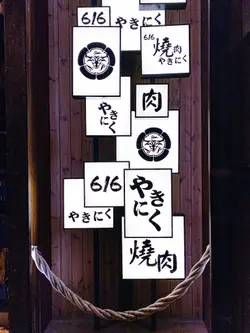 616
やきにく
616
燒肉
やきにく
肉
やきにく
616
やきにく
やき
にく
燒肉